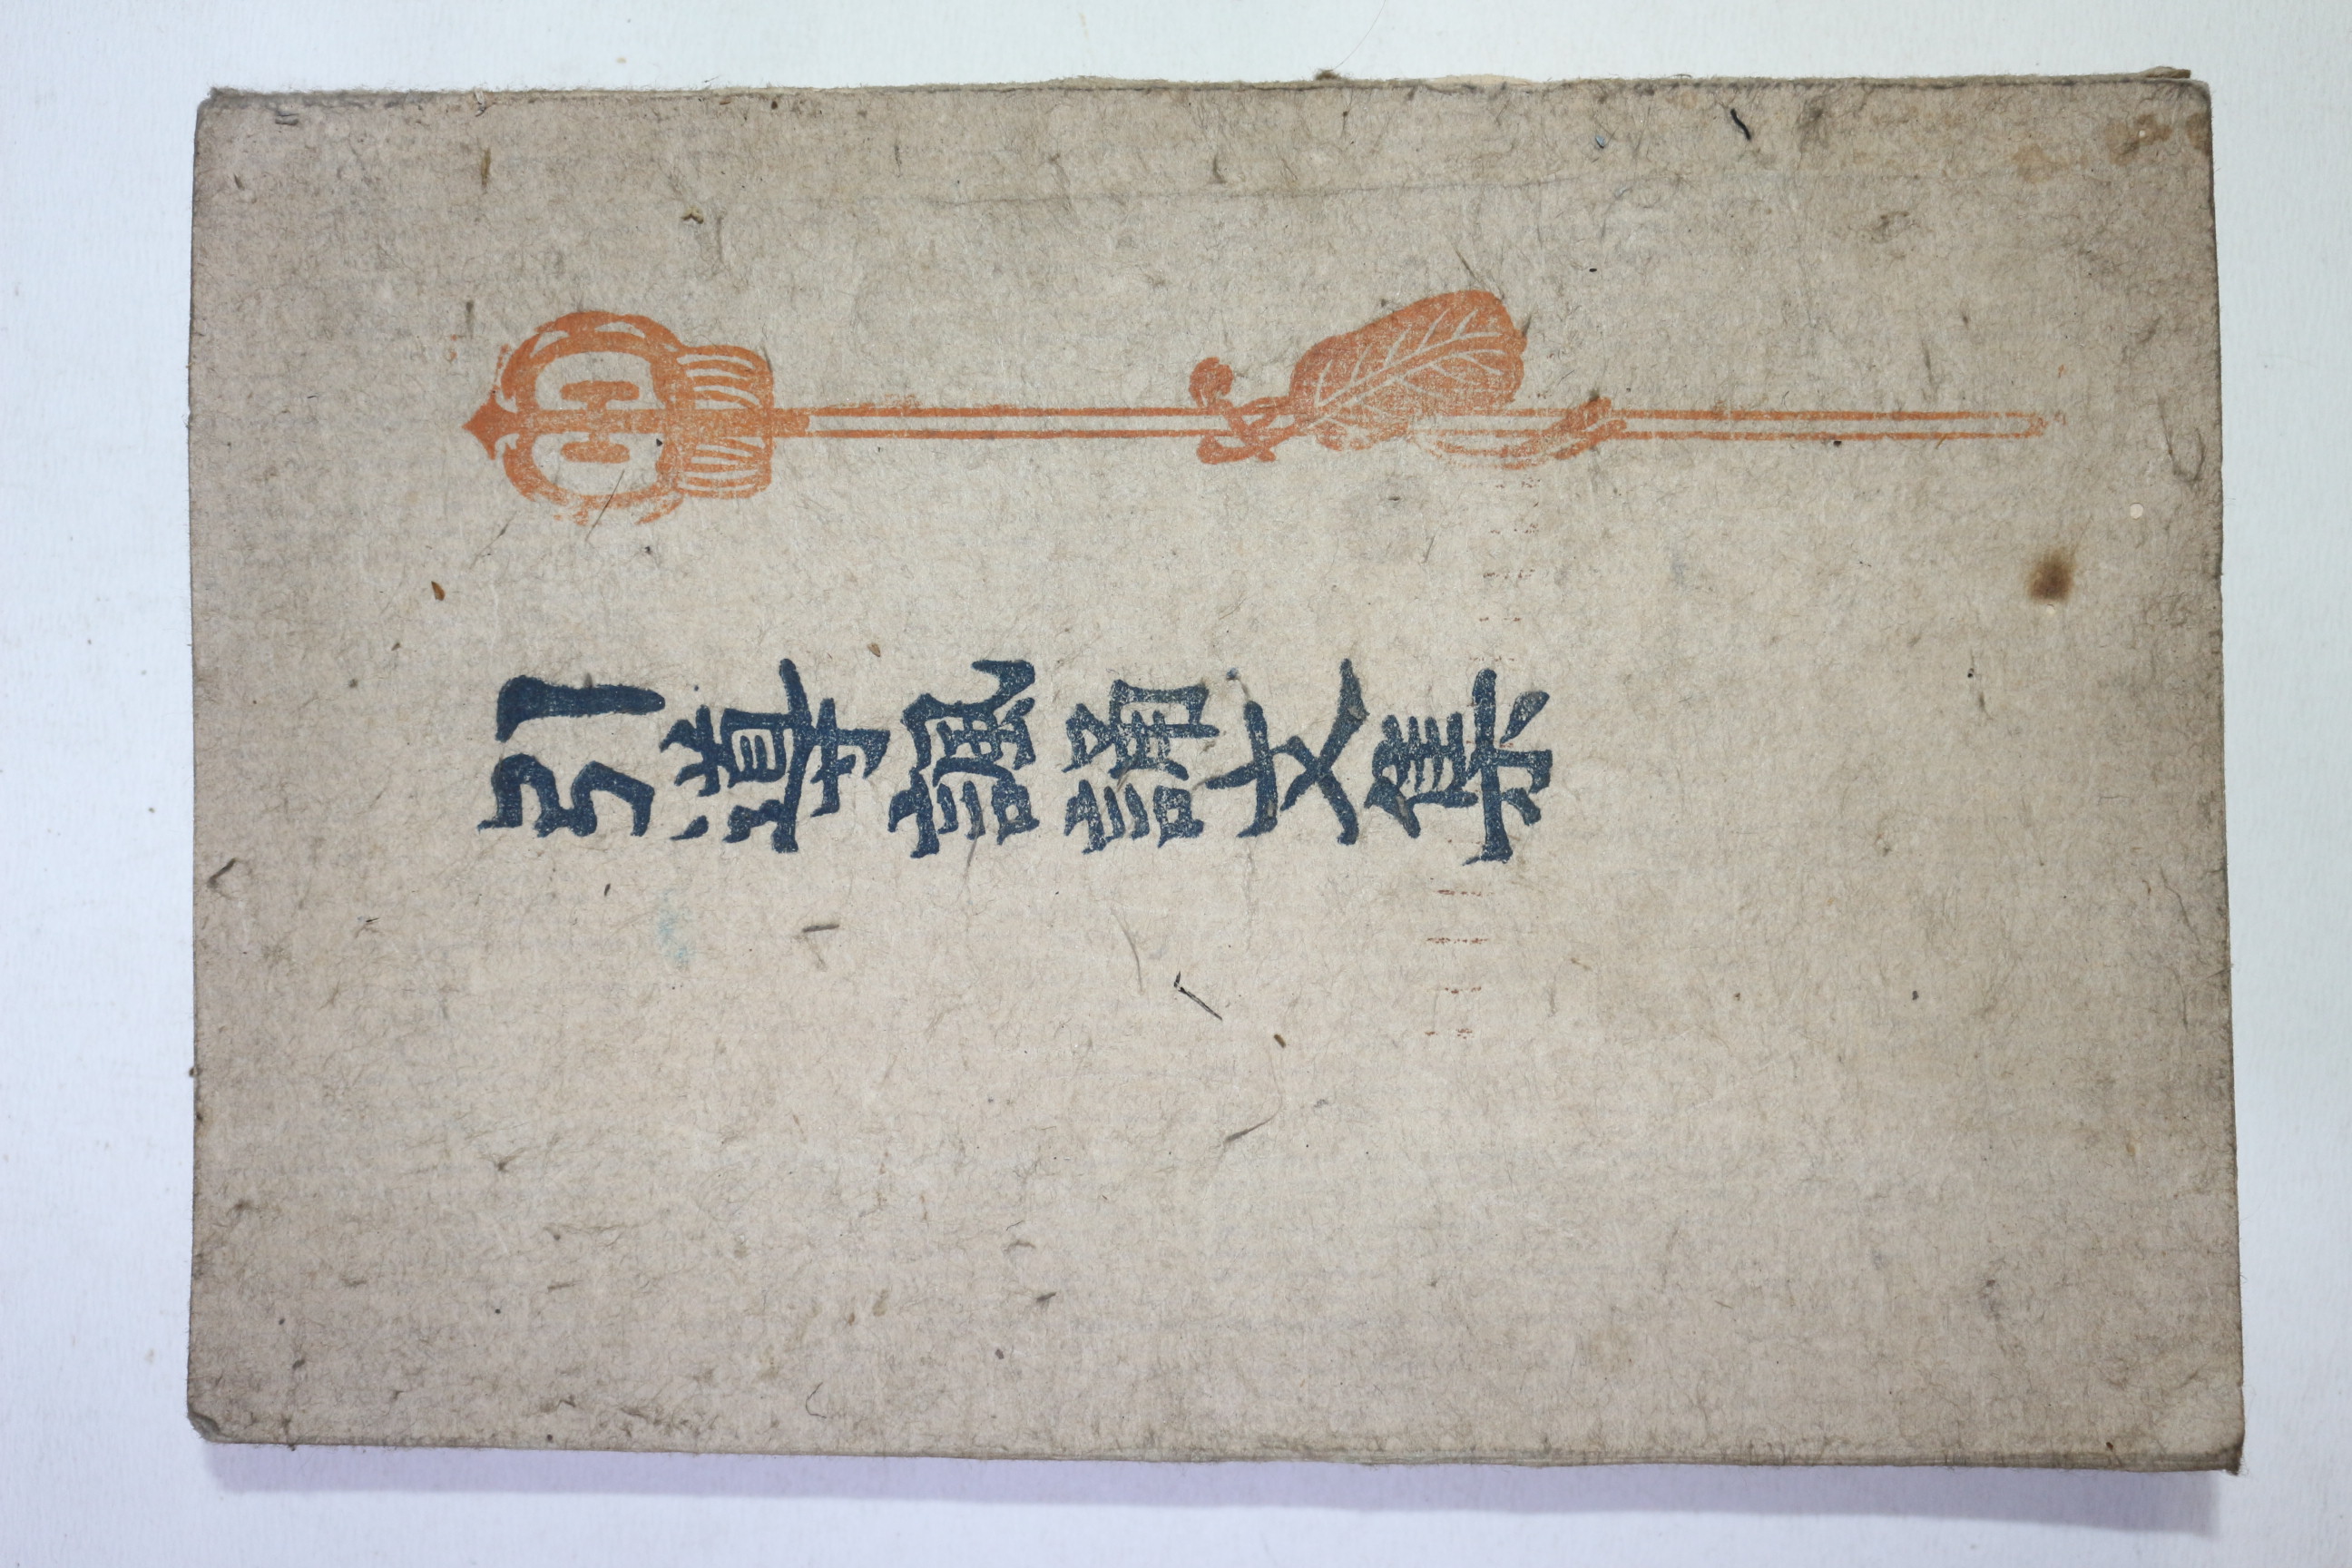 引導諷誦文集